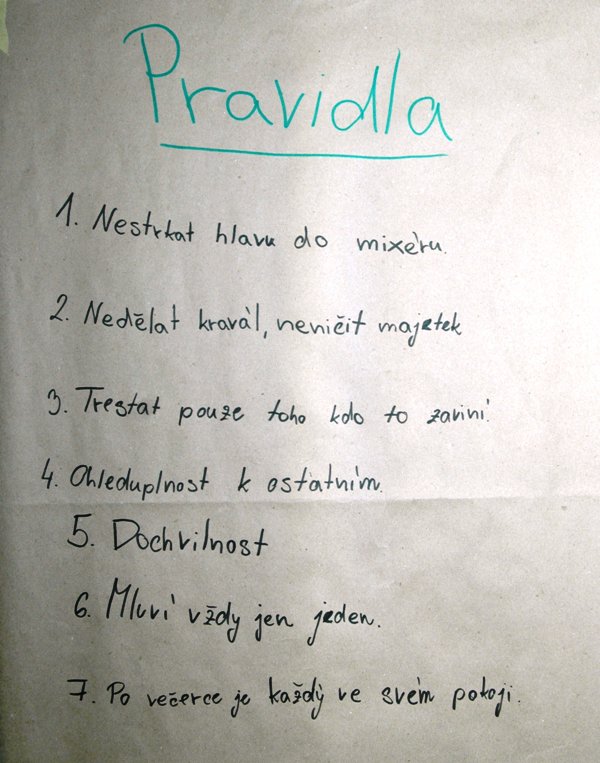 Pravidla
1. Nestrkat hlavu do mixéru.
2. Nedělat kravál, neničit majetek
3. Trestat pouze toho kdo to zaviní.
4. Ohleduplnost k ostatním.
5. Dochvilnost
6. Mluví vždy jen jeden.
7. Po večerce je každý ve svém pokoji.